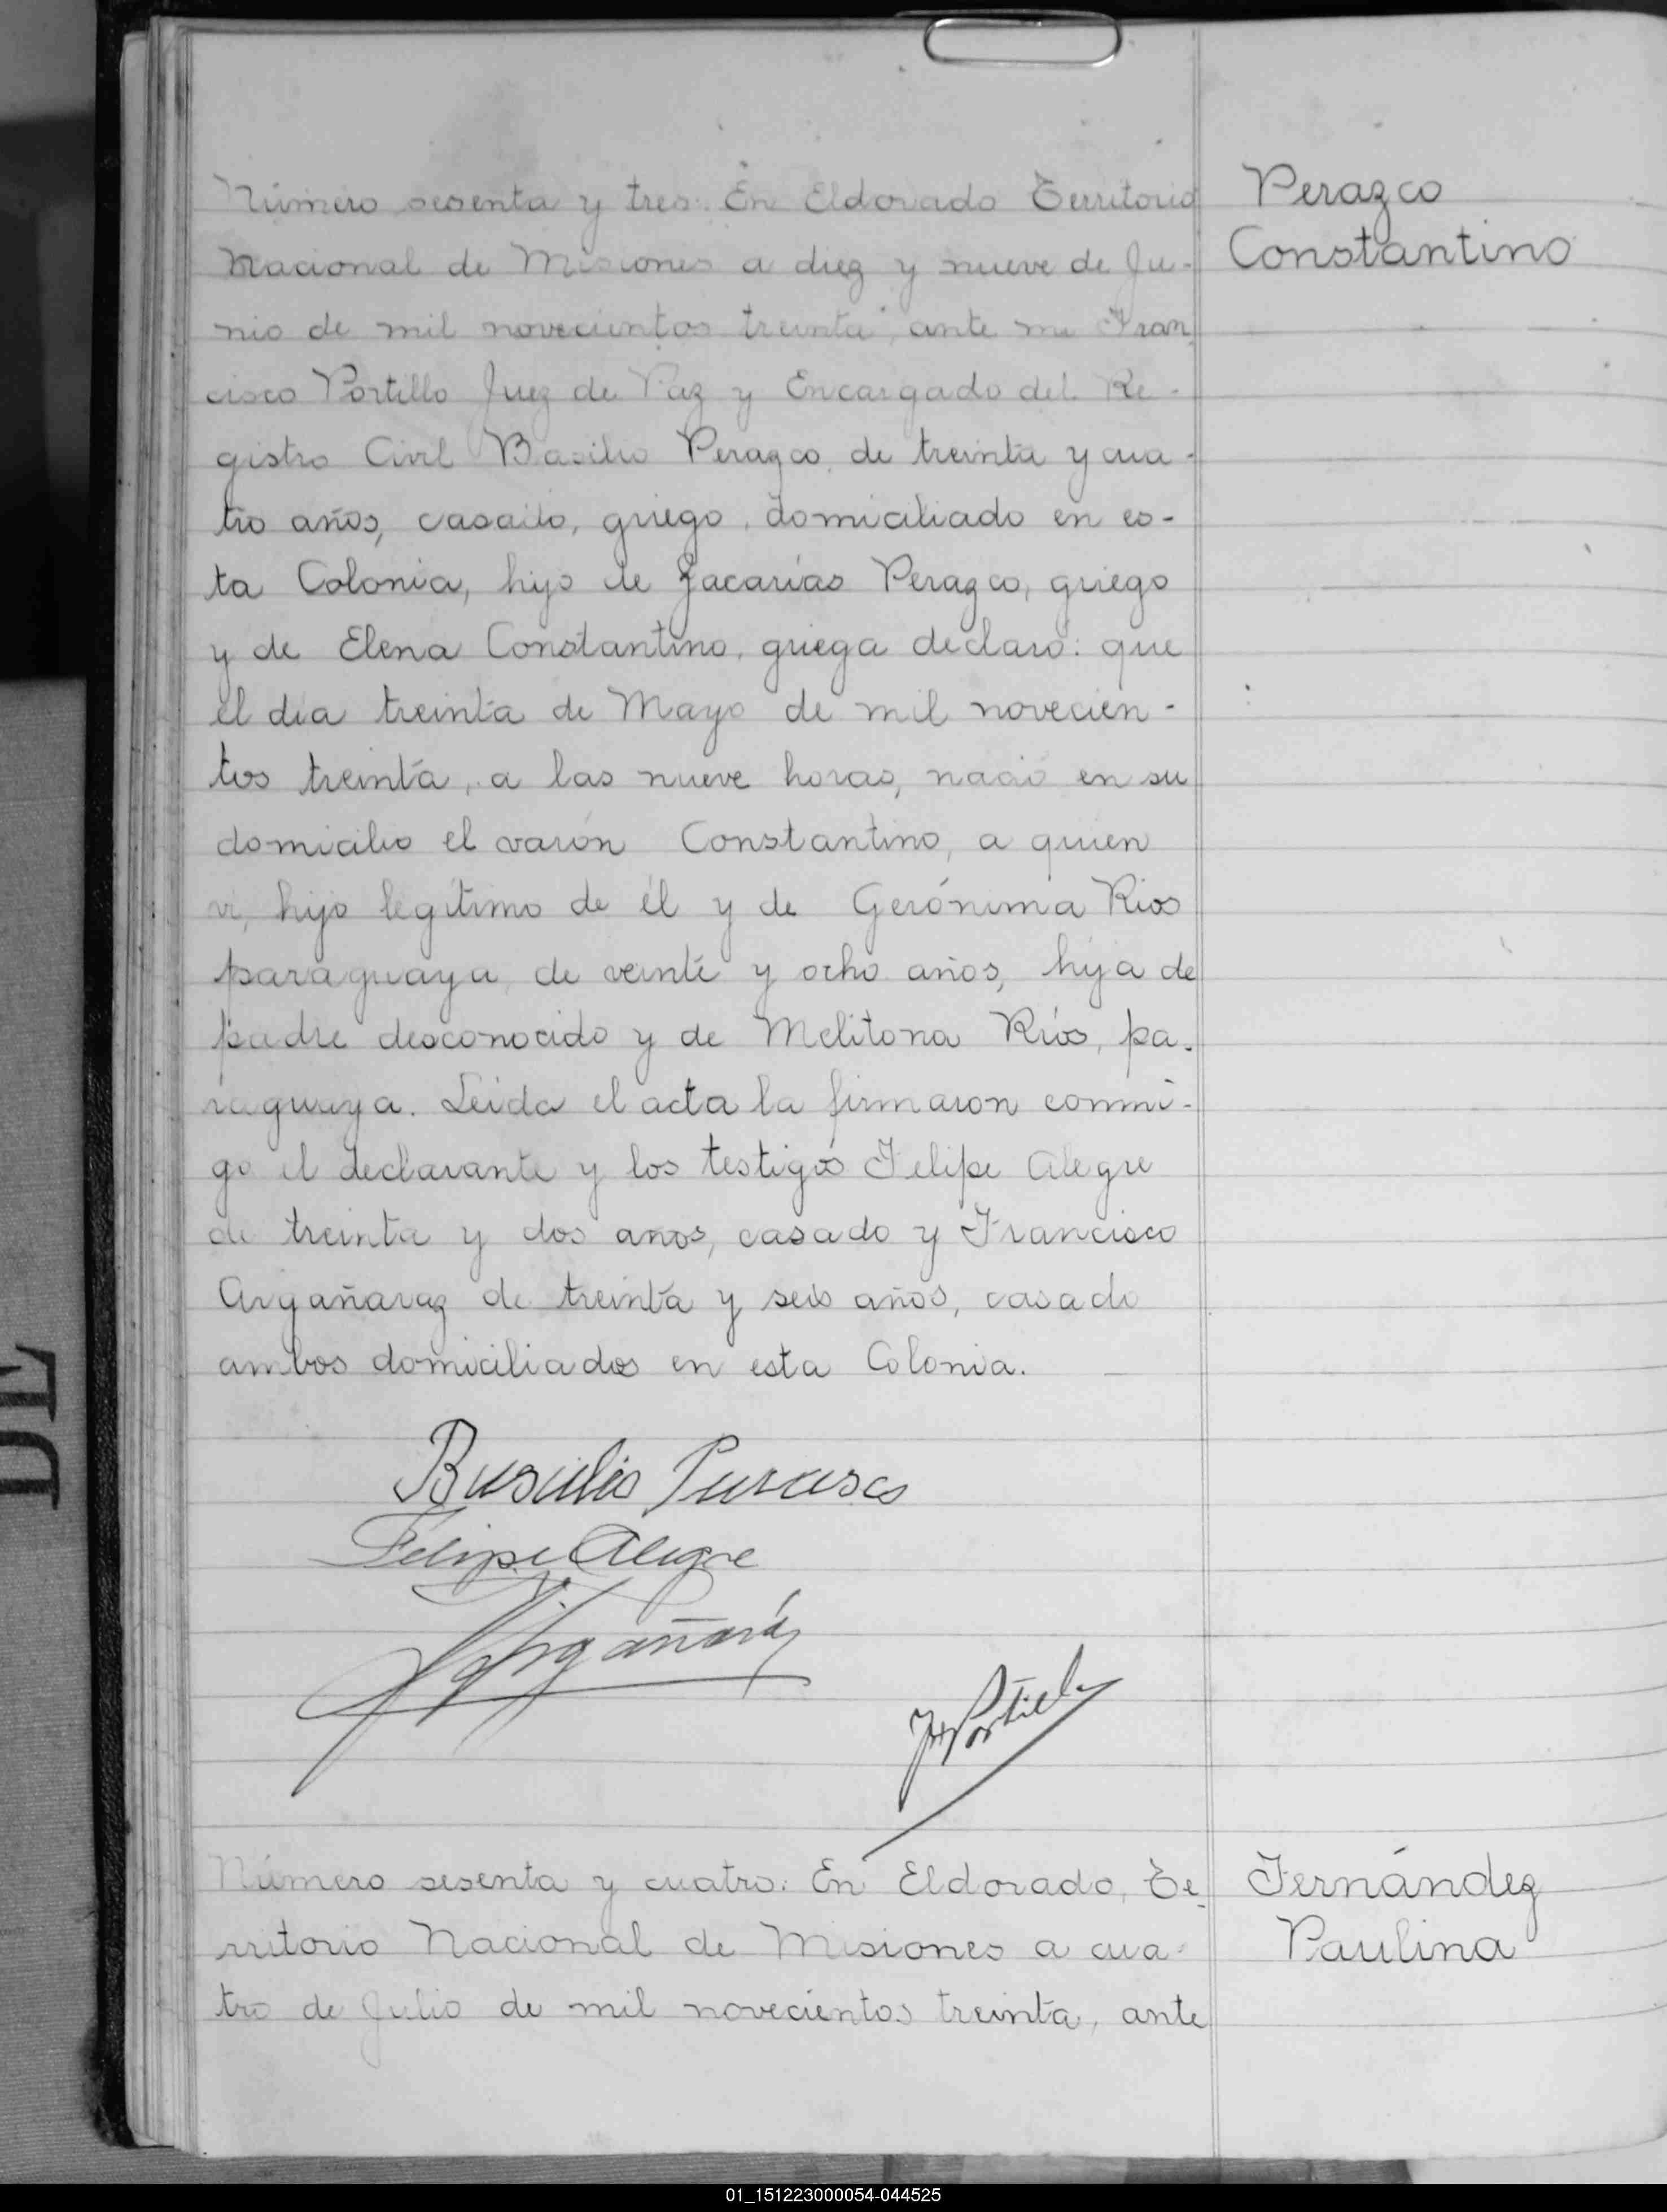 Número sesenta y tres: En Eldorado Territorio
Nacional de Misiones a diez y nueve de Ju-
nio de mil novecientos treinta, ante mi Fran
cisco Portillo Juez de Paz y Encargado del Re-
gistro Civil Basilio Perazco, de treinta y cua-
tro años, casado, griego, domiciliado en es-
ta Colonia, hijo de Zacarías Perazco, griego
y de Elena Constantino, griega declaró: que
el dia treinta de Mayo de mil novecien-
tos treinta, a las nueve horas, nació en su
domicilio el varón Constantino, a quien
vi, hijo legítimo de él y de Gerónima Rios
paraguaya, de veinte y ocho años, hija de
padre desconocido y de Melitona Ríos, pa-
raguaya. Leida el acta la firmaron conmi-
go el declarante y los testigos Felipe Alegre
de treinta y dos años, casado y Francisco
Argañaraz de treinta y seis años, casado
ambos domiciliados en esta Colonia.
Perazco
Constantino
Felipe Alegre
Argañaráz
Número sesenta y cuatro: En Eldorado, Te-
rritorio Nacional de Misiones a cua-
tro de Julio de mil novecientos treinta, ante
Fernández
Paulina
DE
01_151223000054-044525